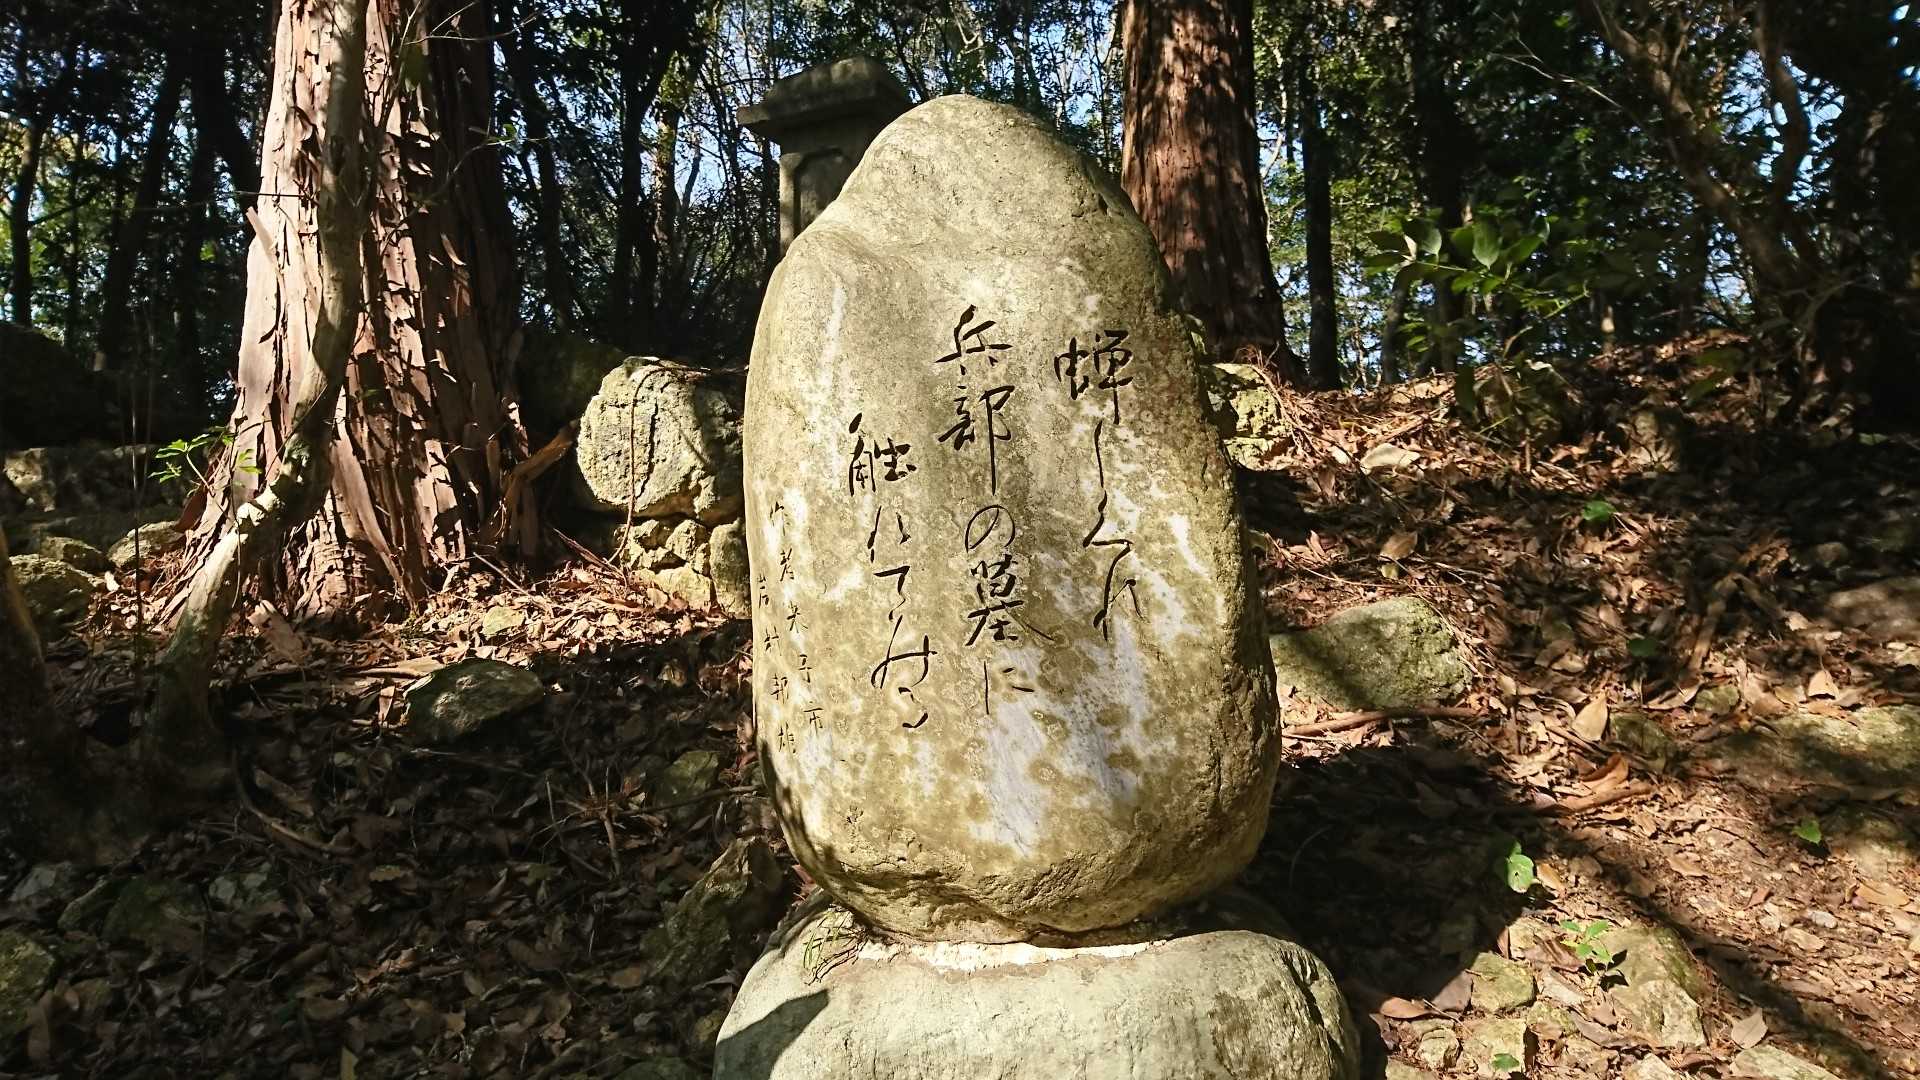 蝉しぐれ
兵部の墓に
触れてみる
作者米子市
岩村邦雄